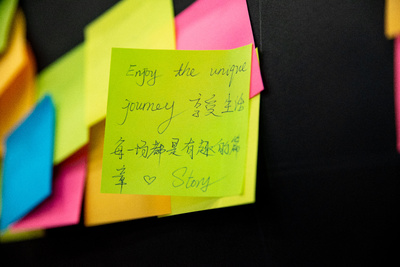 Enjoy the unique
journey 享受生活
每一场都是有趣的篇
章 ♡ Story